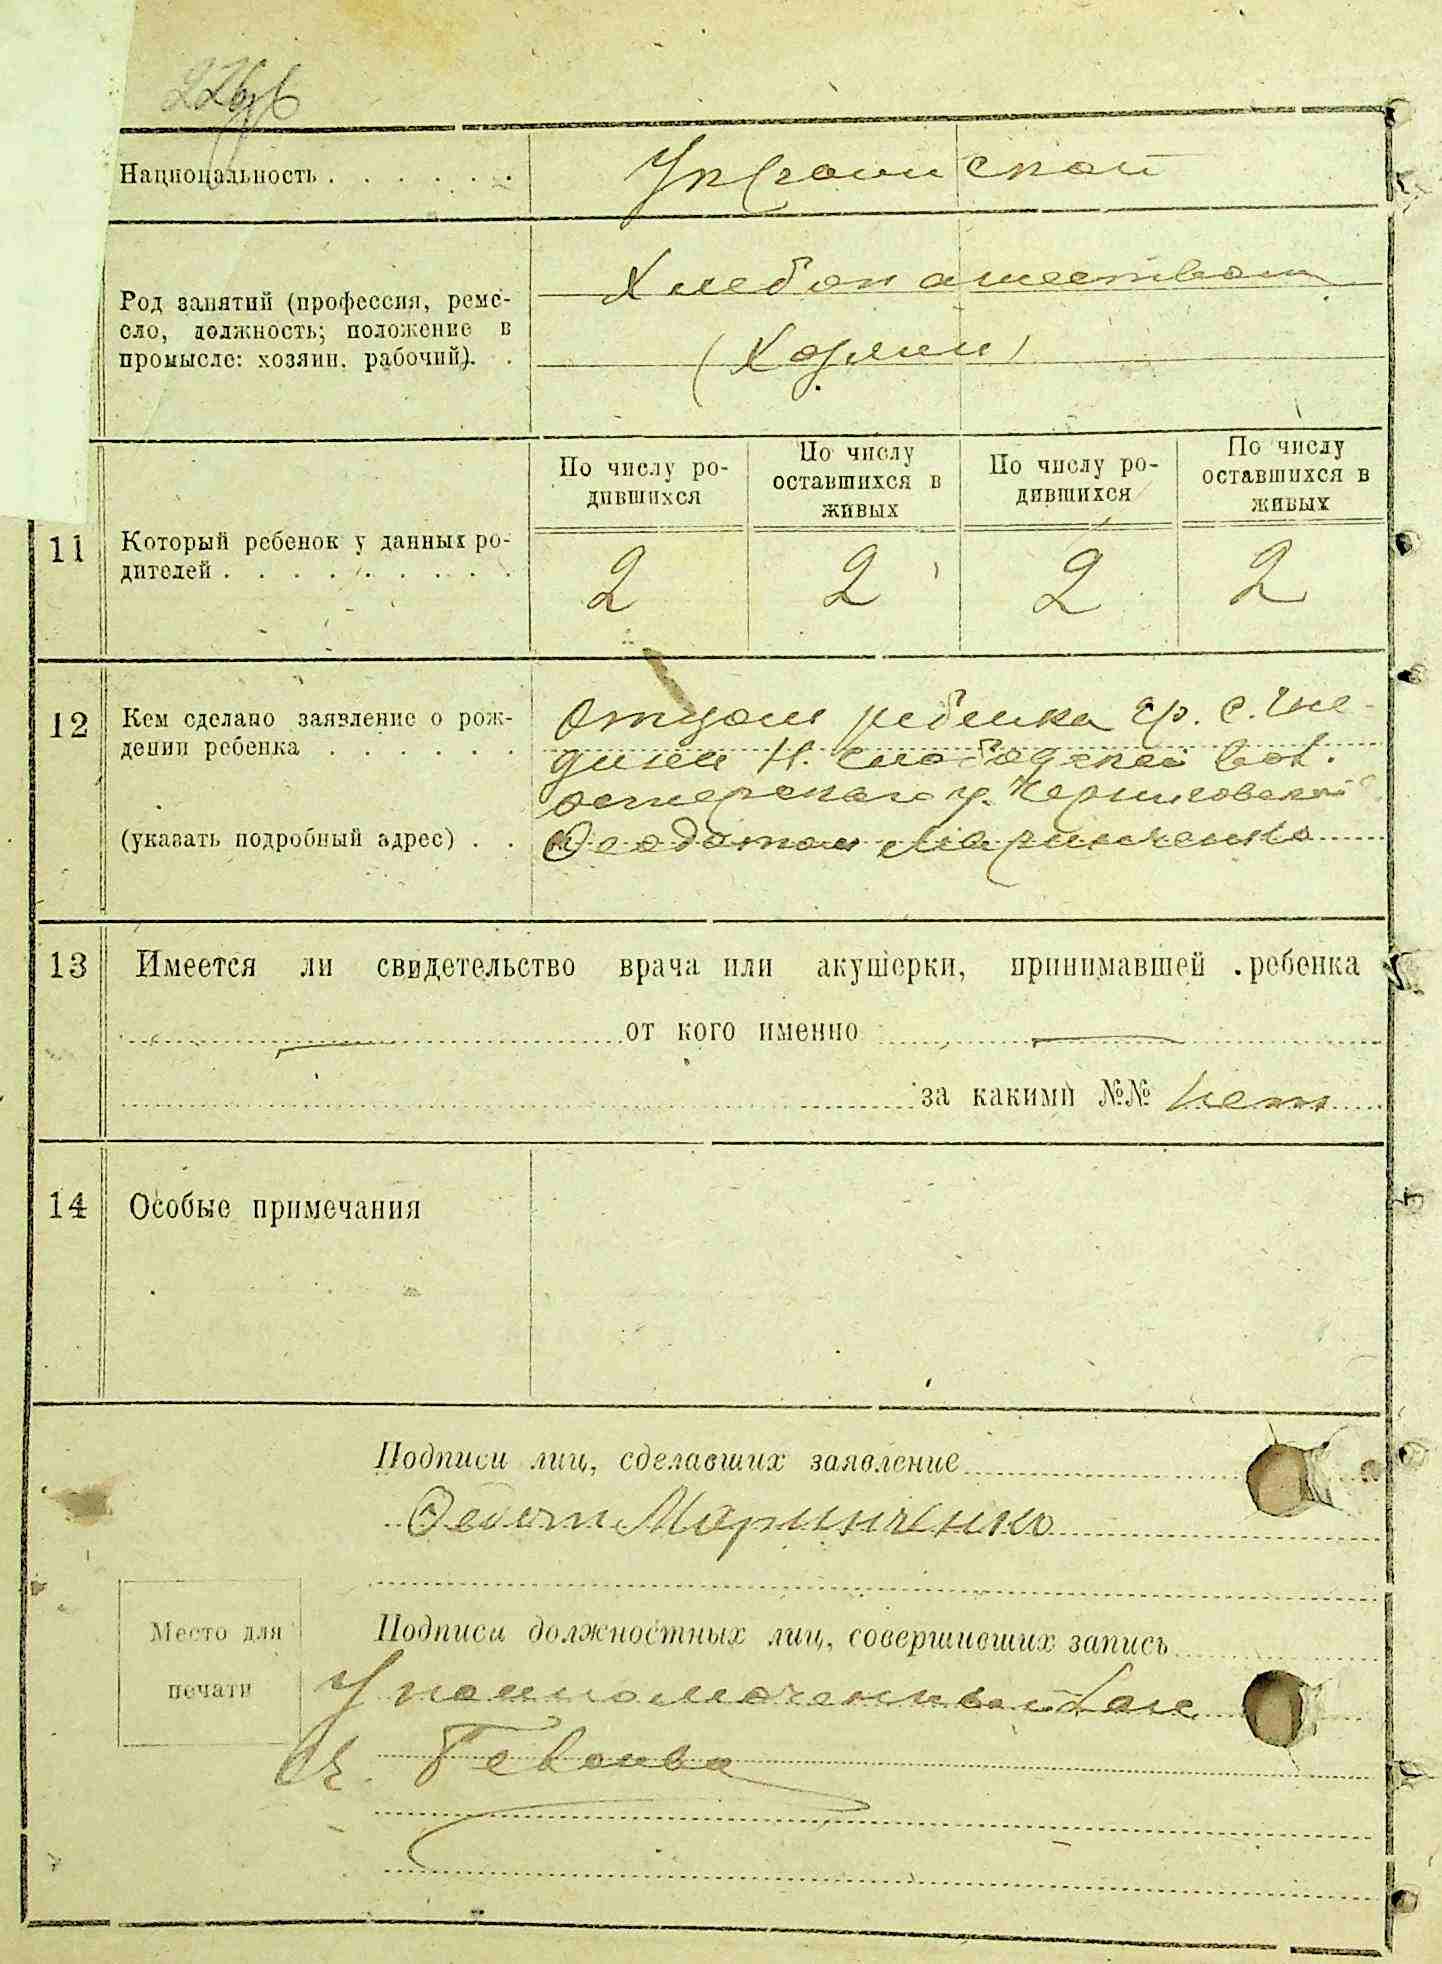 Национальность . . . . . .
Украинской
Род занятий (профессия, реме-
сло, должность; положение в
промысле: хозяин, рабочий). .
Хлебопашеством
(Хозяин)
По числу ро-
дившихся
По числу
оставшихся в
живых
По числу ро-
дившихся
По числу
оставшихся в
живых
11
Который ребенок у данных ро-
дителей . . . . . . . . .
2 2 2 2
12
Кем сделано заявление о рож-
дении ребенка . . . . . .
(указать подробный адрес) . .
Отцом ребенка гр. с.
Н. Слободской вол.
Остерского у. Черниговской
Феодотом Маринченко
13
Имеется ли свидетельство врача или акушерки, принимавшей ребенка
от кого именно
за какими №№ нет
14
Особые примечания
Подписи лиц, сделавших заявление
Федот Маринченко
Место для
печати
Подписи должностных лиц, совершивших запись
Уполномоченный